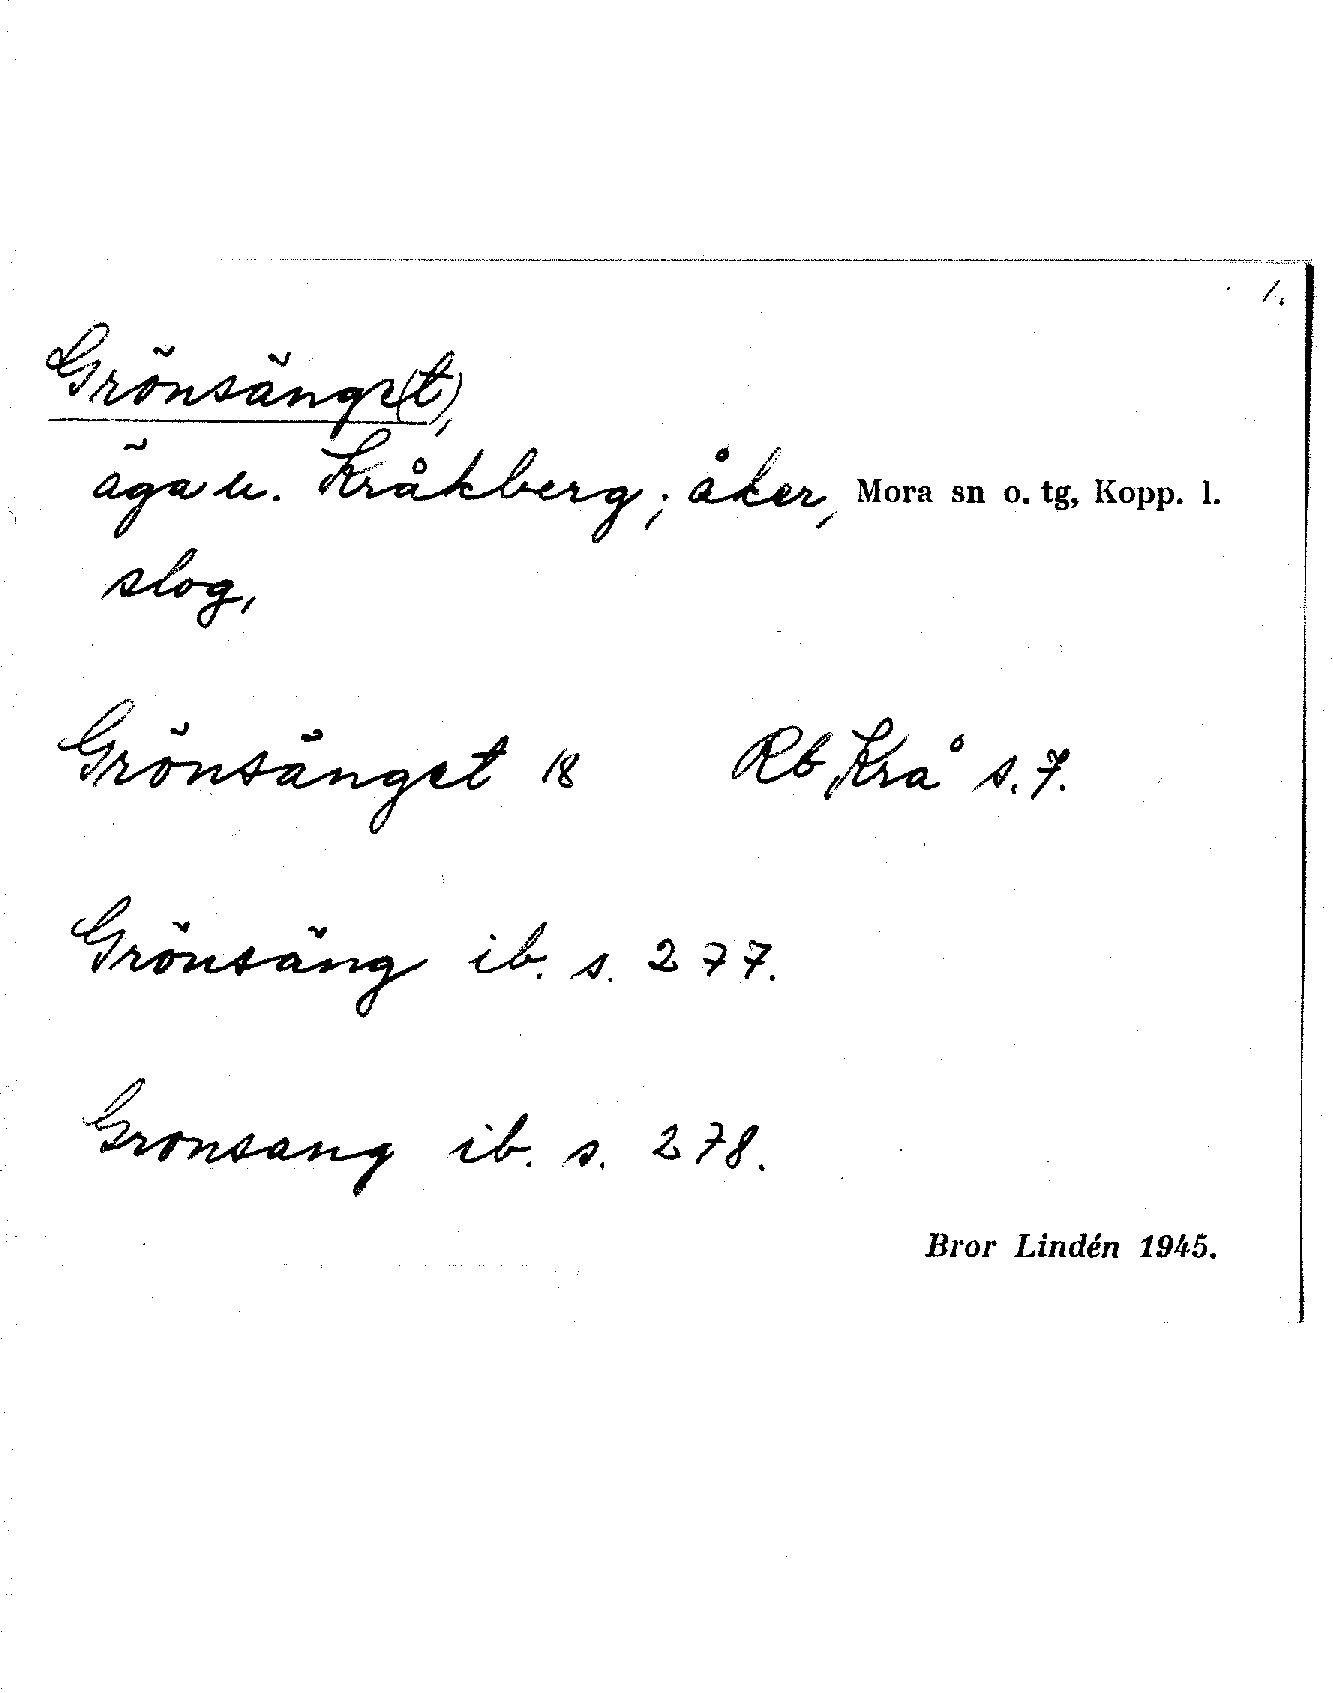 1.
Grönsänge(t),
äga u. Kråkberg; åker, Mora sn o. tg, Kopp. l.
slog,
Grönsänget 18 Rb Krå s. 7.
Grönsäng ib. s. 277.
Gronsang ib. s. 278.
Bror Lindén 1945.